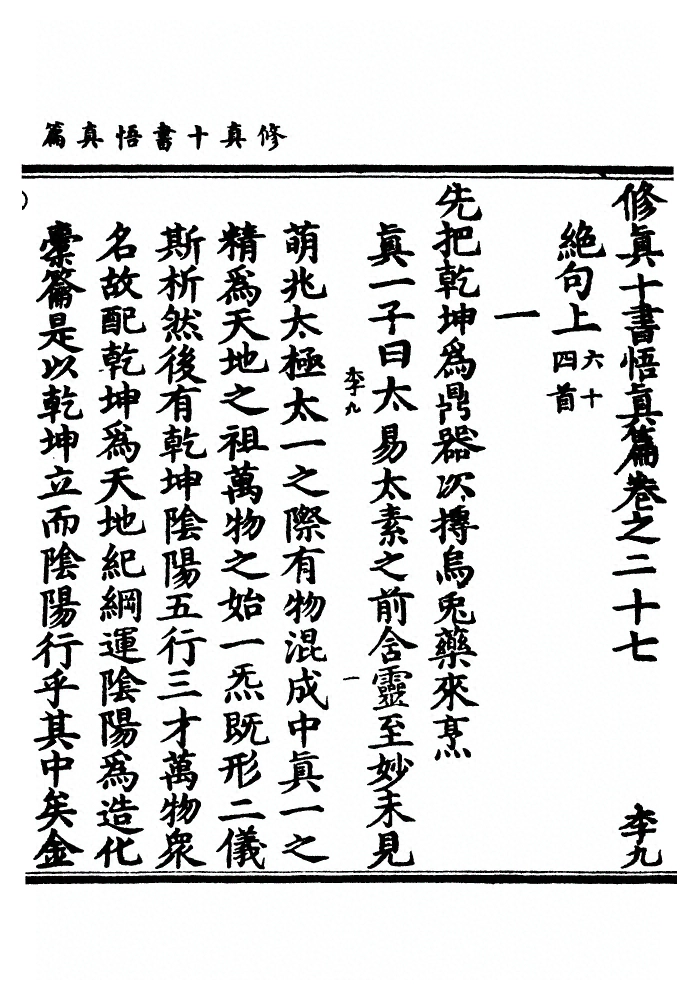 修真十書悟真篇
修眞十書悟眞篇卷之二十七 李九
絶句上 六十四首
一
先把乾坤爲鼎器次搏烏兎藥來烹
眞一子曰太易太素之前含靈至妙未見
李九 一
萌兆太極太一之際有物混成中眞一之
精爲天地之祖萬物之始一炁既形二儀
斯析然後有乾坤陰陽五行三才萬物衆
名故配乾坤爲天地紀綱運陰陽爲造化
橐籥是以乾坤立而陰陽行乎其中矣金